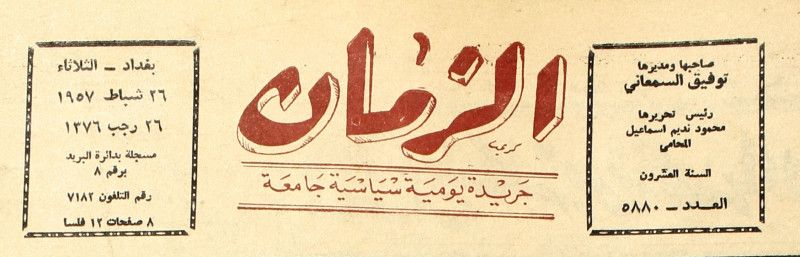 صاحبها ومديرها
توفيق السمعاني
رئيس تحريرها
محمود نديم اسماعيل
المحامي
السنة العشرون
العـدد ــ ٥٨٨٠
الزمان
جريدة يومية سياسية جامعة
بغداد ــ الثلاثاء
٢٦ شباط ١٩٥٧
٢٦ رجب ١٣٧٦
مسجلة بدائرة البريد
برقم ٨
رقم التلفون ٧١٨٢
٨ صفحات ١٢ فلسا